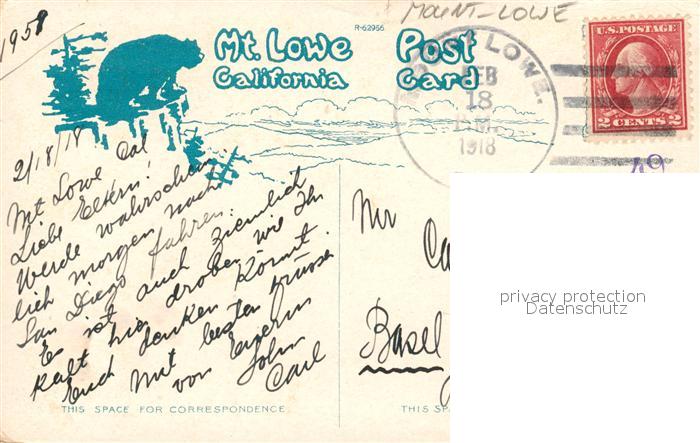 1958
R-62956
MOUNT-LOWE
Mt. Lowe
California
Post
Card
LOWE.
FEB
18
1918
U.S. POSTAGE
2 CENTS 2
49
2/18/18
Mt Lowe Cal
Liebe Eltern!
Werde wahrschein
lich morgen nach
San Diego fahren.
Es ist auch ziemlich
kalt hier droben wie Ihr
Euch denken könnt.
Mit besten Grüssen
von Eurem
Sohn
Carl
Mr
Ca
Basel
privacy protection
Datenschutz
THIS SPACE FOR CORRESPONDENCE.
THIS SP